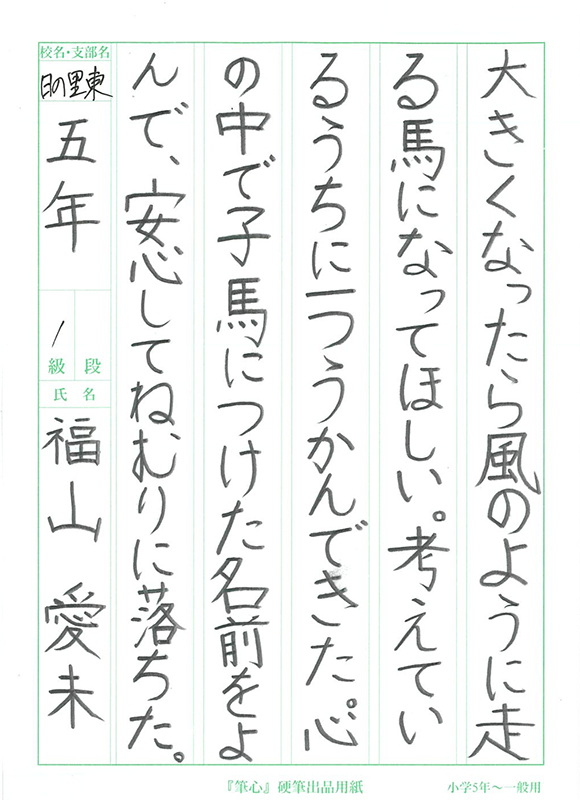 大きくなったら風のように走
る馬になってほしい。考えてい
るうちに一つうかんできた。心
の中で子馬につけた名前をよ
んで、安心してねむりに落ちた。
校名・支部名
日の里東
五年
1
級 段
氏 名
福山 愛未
『筆心』硬筆出品用紙
小学5年～一般用